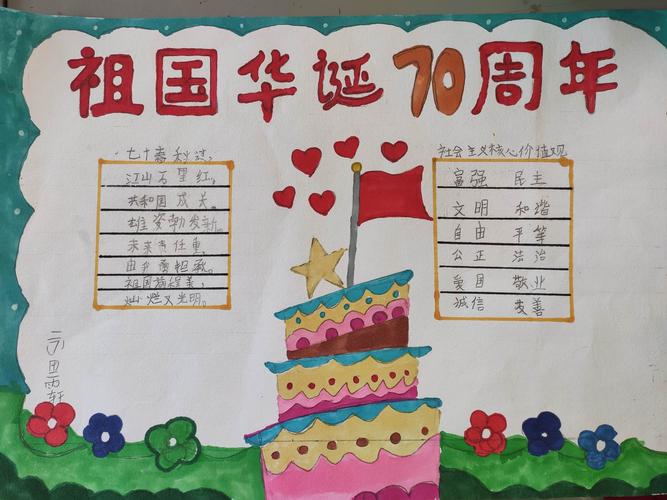 祖国华诞70周年
七十春秋
江山万里红,
共和国成长。
雄姿勃发新。
未来责任重,
由我勇担承。
祖国前程美,
灿烂又光明。
社会主义核心价值观
富强 民主
文明 和谐
自由 平等
公正 法治
爱国 敬业
诚信 友善
田雨轩